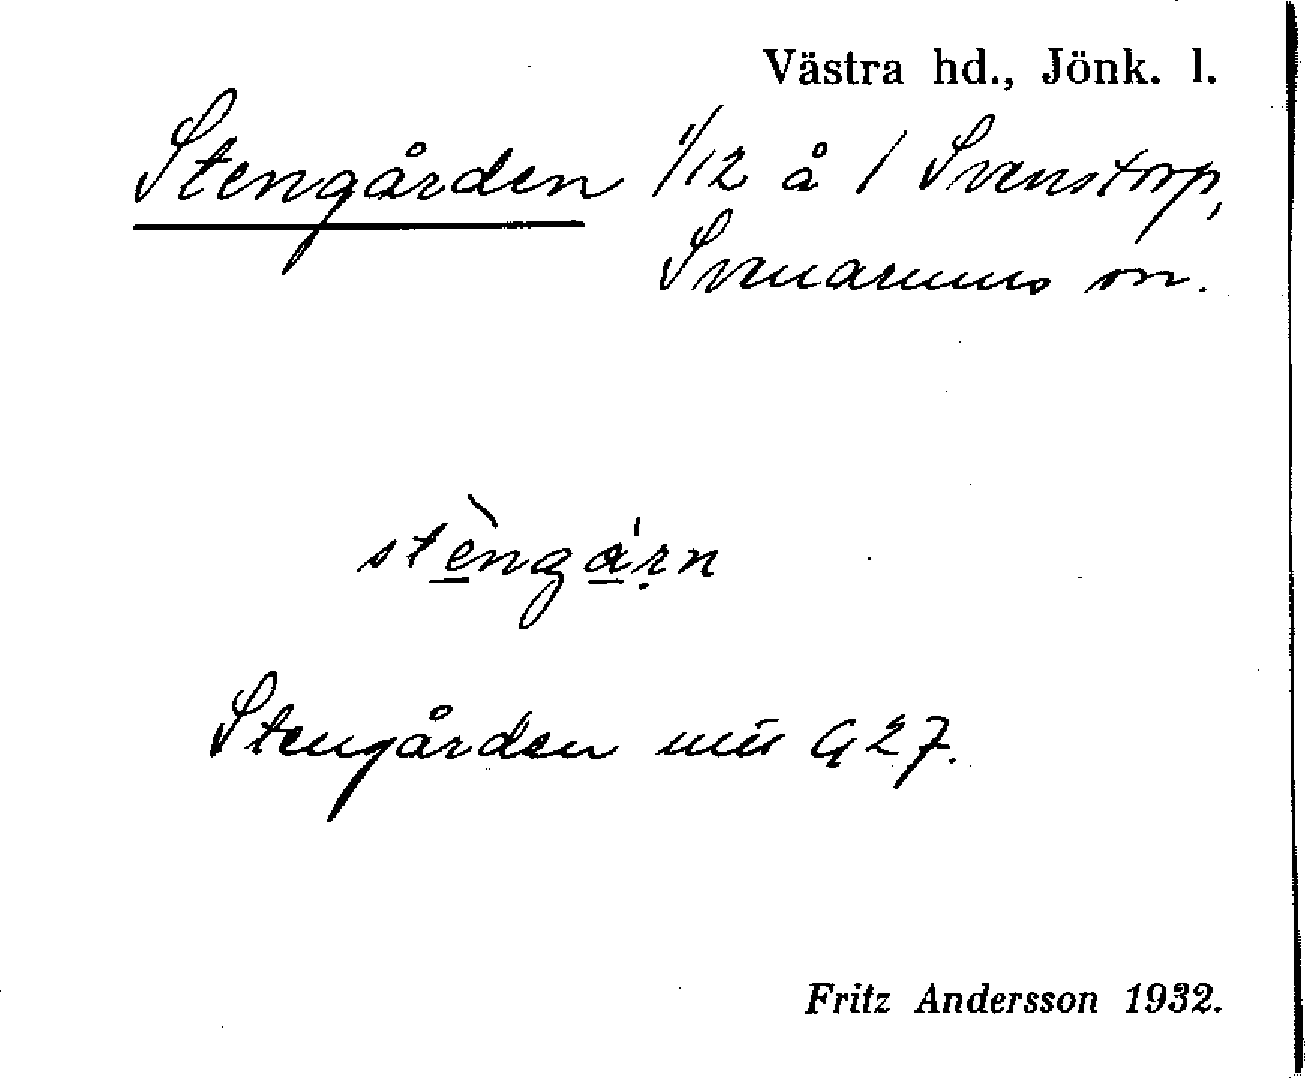 Västra hd., Jönk. l.
Stengården 1/12 å 1 Svenstorp,
Svenarums sn.
stèngárn
Stengården G 27.
Fritz Andersson 1932.